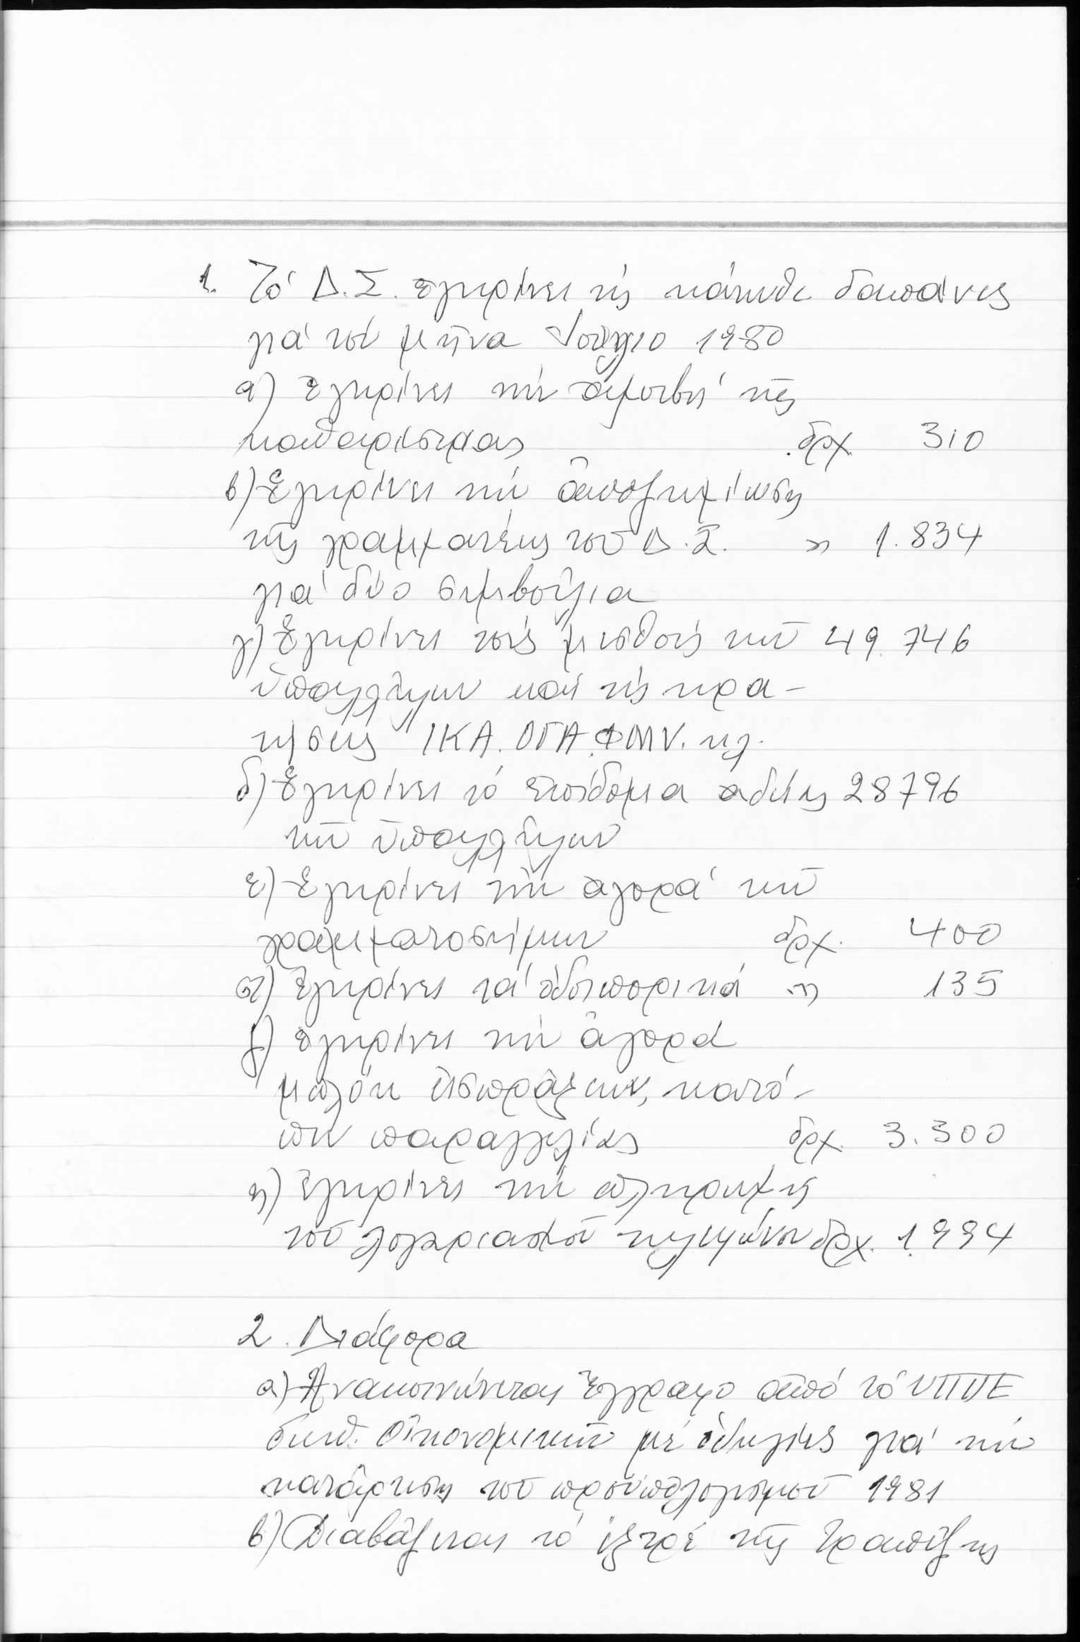 1. Τό Δ.Σ. εγκρίνει τίς κάτωθι δαπάνες
γιά τόν μῆνα Ἰούλιο 1980
α) Εγκρίνει τήν αμοιβή τῆς
καθαρίστριας δρχ. 310
β) Εγκρίνει τήν ἀποζημίωση
τῆς γραμματέως τοῦ Δ.Σ. " 1.834
γιά δύο συμβούλια
γ) Εγκρίνει τούς μισθούς τῶν 49.746
ὑπαλλήλων καί τίς κρα-
τήσεις ΙΚΑ. ΟΓΑ. ΦΜΥ. κλ.
δ) Εγκρίνει τό επίδομα αδείας 28796
τῶν ὑπαλλήλων
ε) Εγκρίνει τήν αγορά τῶν
γραμματοσήμων δρχ. 400
στ) Εγκρίνει τά ὁδοιπορικά " 135
ζ) Εγκρίνει τήν ἀγορά
μπλόκ εισπράξεων, κατό-
πιν παραγγελίας δρχ. 3.300
η) Εγκρίνει τήν πληρωμή
τοῦ λογαριασμοῦ τηλεφώνου δρχ. 1.994
2. Διάφορα
α) Ανακοινώνεται ἔγγραφο από τό ΥΠΠΕ
διευθ. Οἰκονομικοῦ μέ ὁδηγίες γιά τήν
κατάρτιση τοῦ προϋπολογισμοῦ 1981
β) Διαβάζεται τό εξτρέ τῆς Τραπέζης